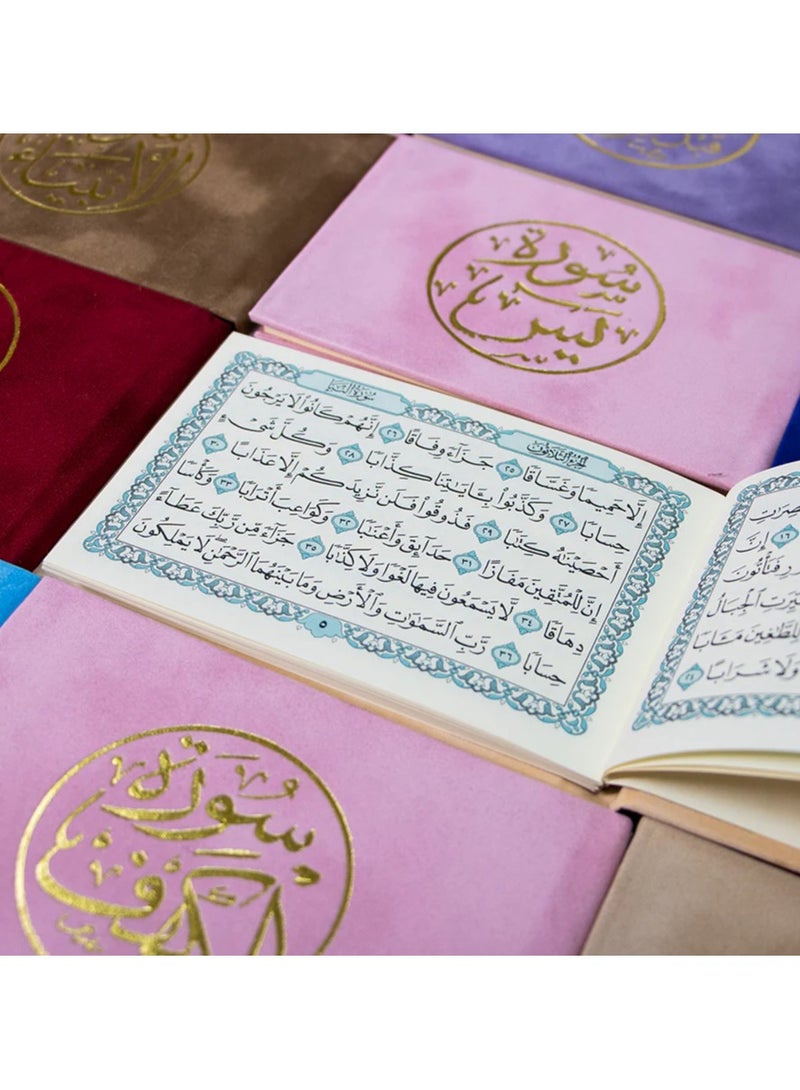 سُورَة
يس
الجُزْءُ الثَّلَاثُونَ
سُورَةُ النَّبَإِ
إِلَّا حَمِيمًا وَغَسَّاقًا ٢٥ جَزَآءً وِفَاقًا ٢٦ إِنَّهُمْ كَانُوا۟ لَا يَرْجُونَ
حِسَابًا ٢٧ وَكَذَّبُوا۟ بِـَٔايَـٰتِنَا كِذَّابًا ٢٨ وَكُلَّ شَىْءٍ
أَحْصَيْنَـٰهُ كِتَـٰبًا ٢٩ فَذُوقُوا۟ فَلَن نَّزِيدَكُمْ إِلَّا عَذَابًا ٣٠
إِنَّ لِلْمُتَّقِينَ مَفَازًا ٣١ حَدَآئِقَ وَأَعْنَـٰبًا ٣٢ وَكَوَاعِبَ أَتْرَابًا ٣٣ وَكَأْسًا
دِهَاقًا ٣٤ لَّا يَسْمَعُونَ فِيهَا لَغْوًا وَلَا كِذَّٰبًا ٣٥ جَزَآءً مِّن رَّبِّكَ عَطَآءً
حِسَابًا ٣٦ رَّبِّ ٱلسَّمَـٰوَٰتِ وَٱلْأَرْضِ وَمَا بَيْنَهُمَا ٱلرَّحْمَـٰنِ ۖ لَا يَمْلِكُونَ
٥
١٦ إِنَّ
فَتَأْتُونَ
ٱلْجِبَالُ
لِّلطَّـٰغِينَ مَـَٔابًا
وَلَا شَرَابًا ٢٤
سورة
الكهف